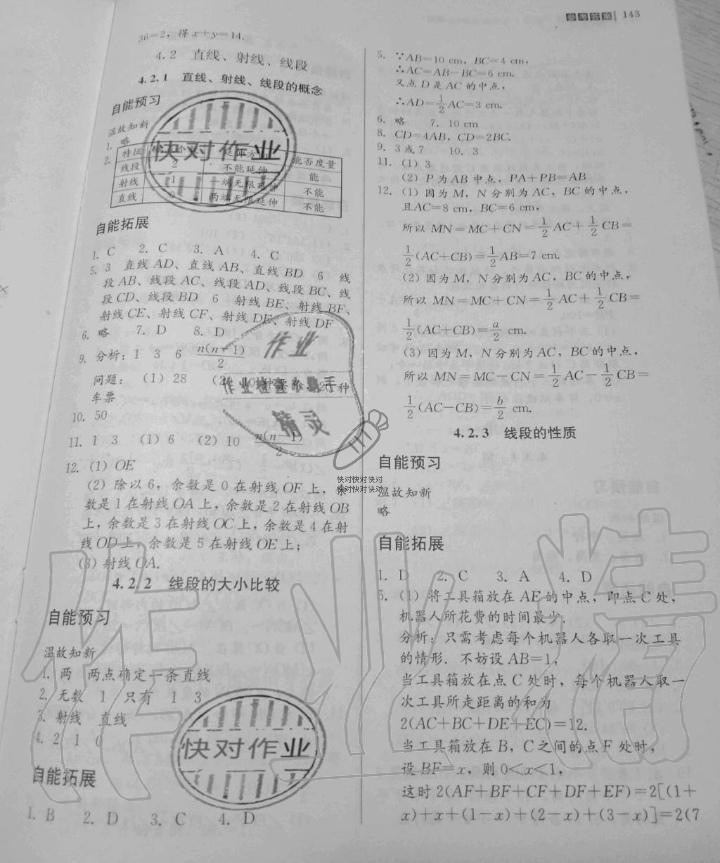 参考答案 143
36=2，得x+y=14.
4.2 直线、射线、线段
4.2.1 直线、射线、线段的概念
自能预习
温故知新
1. 略
2. 特征 能否度量
线段 2 不能延伸 能
射线 1 一端无限延伸 不能
直线 0 两端无限延伸 不能
快对作业
自能拓展
1. C 2. C 3. A 4. C
5. 3 直线 AD、直线 AB、直线 BD 6 线
段 AB、线段 AC、线段 AD、线段 BC、线
段 CD、线段 BD 6 射线 BE、射线 BF、
射线 CE、射线 CF、射线 DE、射线 DF
6. 略 7. D 8. D
9. 分析：1 3 6 n(n+1)/2
问题：(1) 28 种
车票
作业
作业检查小帮手
精灵
10. 50
11. 1 3 (1) 6 (2) 10
12. (1) OE
(2) 除以 6，余数是 0 在射线 OF 上，余
数是 1 在射线 OA 上，余数是 2 在射线 OB
上，余数是 3 在射线 OC 上，余数是 4 在射
线 OD 上，余数是 5 在射线 OE 上；
(3) 射线 OA.
快对快对快对
快对快对快对
4.2.2 线段的大小比较
自能预习
温故知新
1. 两 两点确定一条直线
2. 无数 1 只有 1 3
3. 射线 直线
4. 2 1 0
快对作业
自能拓展
1. B 2. D 3. C 4. D
5. ∵AB=10 cm，BC=4 cm，
∴AC=AB−BC=6 cm.
又点 D 是 AC 的中点，
∴AD=1/2AC=3 cm.
6. 略 7. 10 cm
8. CD=4AB，CD=2BC.
9. 3 或 7 10. 3
11. (1) 3
(2) P 为 AB 中点，PA+PB=AB
12. (1) 因为 M，N 分别为 AC，BC 的中点，
且AC=8 cm，BC=6 cm，
所以 MN=MC+CN=1/2AC+1/2CB=
1/2(AC+CB)=1/2AB=7 cm.
(2) 因为 M，N 分别为 AC，BC 的中点，
所以 MN=MC+CN=1/2AC+1/2CB=
1/2(AC+CB)=a/2 cm.
(3) 因为 M，N 分别为 AC，BC 的中点，
所以 MN=MC−CN=1/2AC−1/2CB=
1/2(AC−CB)=b/2 cm.
4.2.3 线段的性质
自能预习
温故知新
略
自能拓展
1. D 2. C 3. A 4. D
5. (1) 将工具箱放在 AE 的中点，即点 C 处，
机器人所花费的时间最少.
分析：只需考虑每个机器人各取一次工具
的情形. 不妨设 AB=1，
当工具箱放在点 C 处时，每个机器人取一
次工具所走距离的和为
2(AC+BC+DE+EC)=12.
当工具箱放在 B，C 之间的点 F 处时，
设 BF=x，则 0<x<1，
这时 2(AF+BF+CF+DF+EF)=2[(1+
x)+x+(1−x)+(2−x)+(3−x)]=2(7
作业精灵